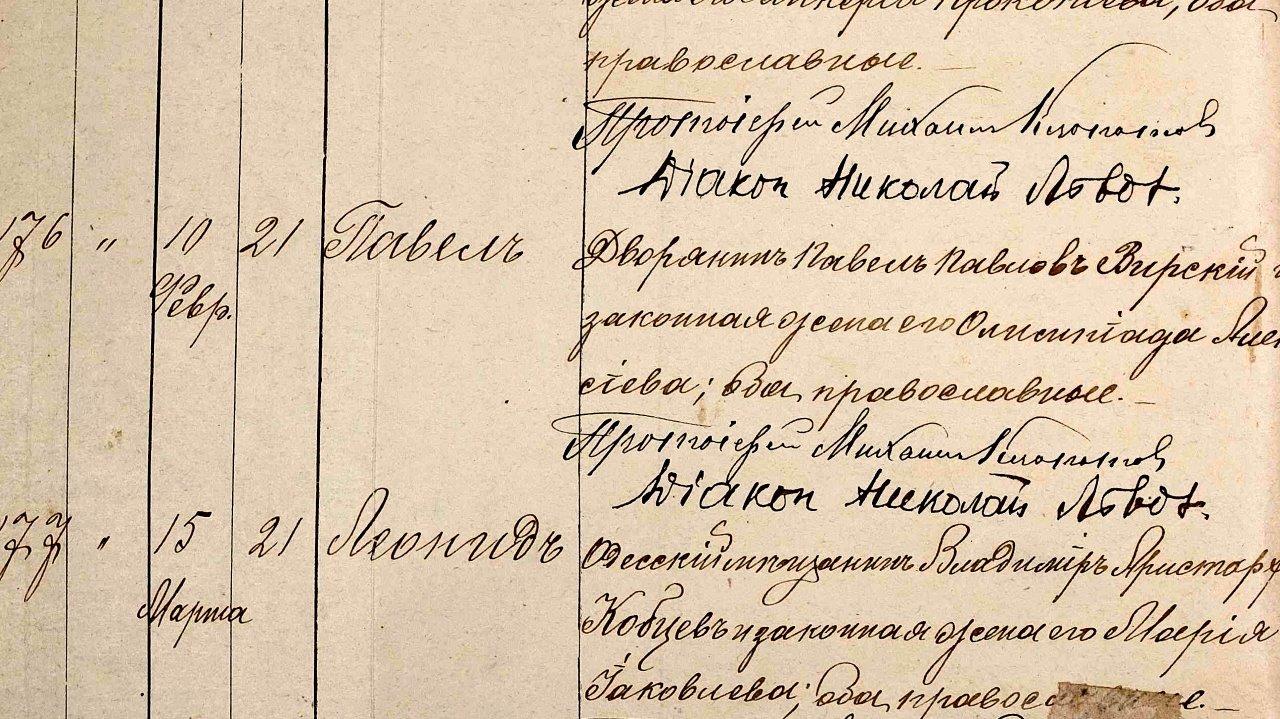 православные. —
Протоіерей Михаилъ
Діакон Николай Львов.
176 " 10 21 Павелъ Дворянинъ Павелъ Павловъ Вирскій и
Февр. законная жена его Олимпіада Алек
сіева; оба православные. —
Протоіерей Михаилъ
Діакон Николай Львов.
177 " 15 21 Леонидъ Одесскій мѣщанинъ Владиміръ Аристарх
Марта Кобцевъ и законная жена его Марія
Іаковлева; оба правос е. —